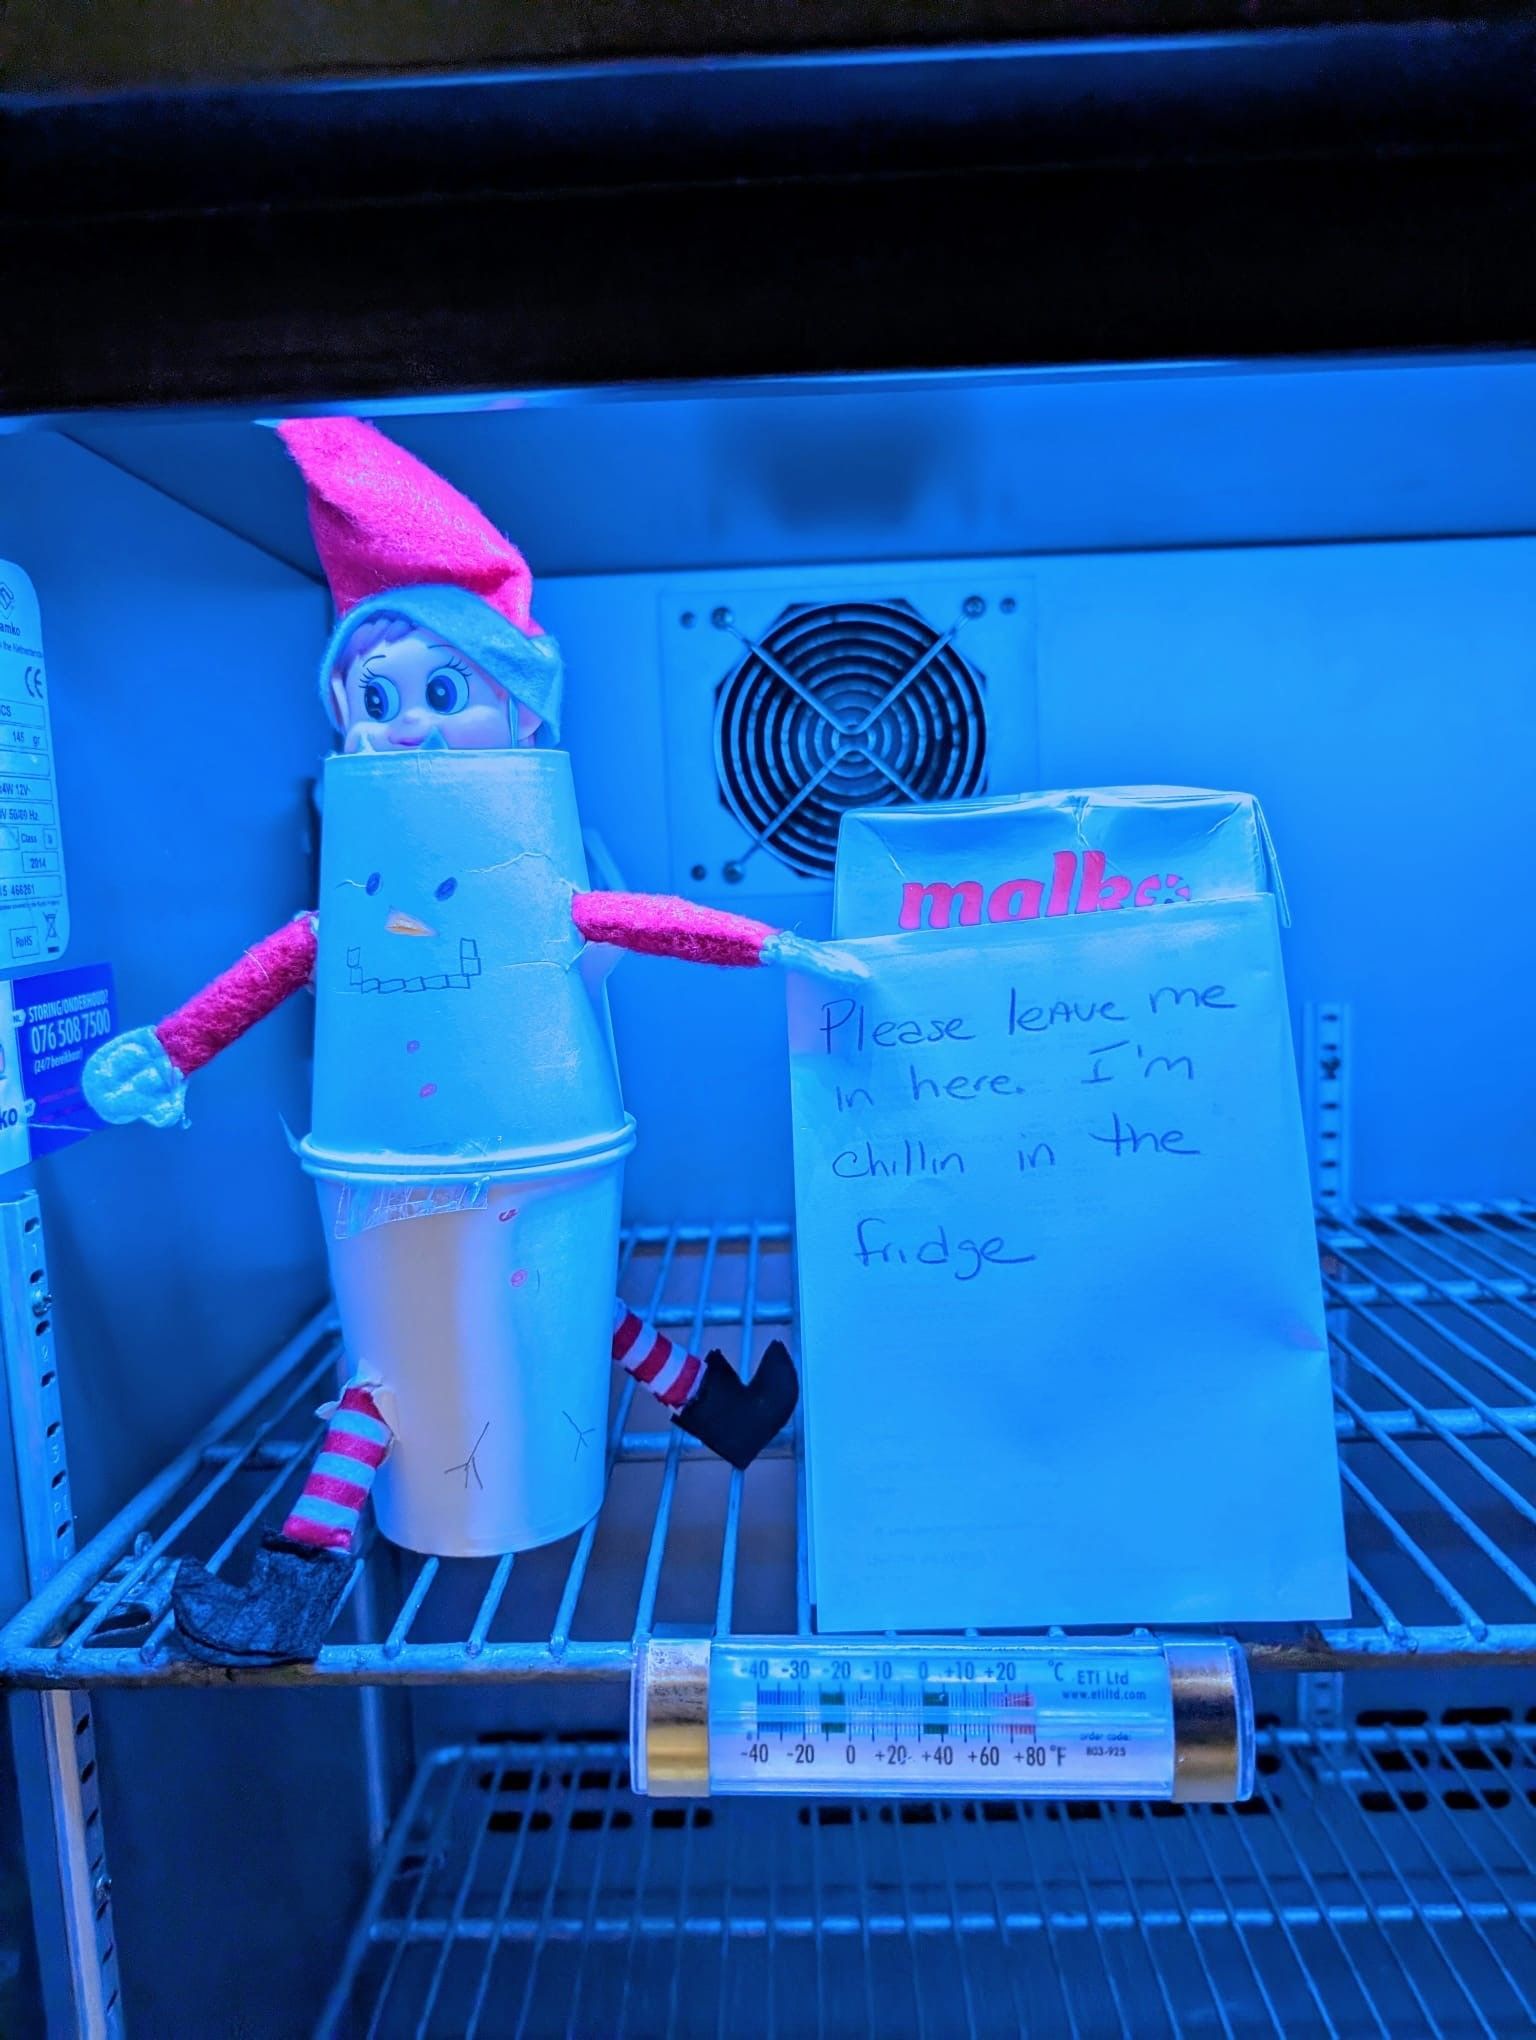 amko
CE
CS
145 gr
4W 12V
V 50/60 Hz
Class
2014
5 466261
RoHS
NL
STORING/ONDERHOUD?
076 508 7500
(24/7 bereikbaar)
ko
malk
Please leave me
in here. I'm
chillin in the
fridge
-40 -30 -20 -10 0 +10 +20 °C ETI Ltd
www.etiltd.com
-40 -20 0 +20 +40 +60 +80 °F
order code:
803-925